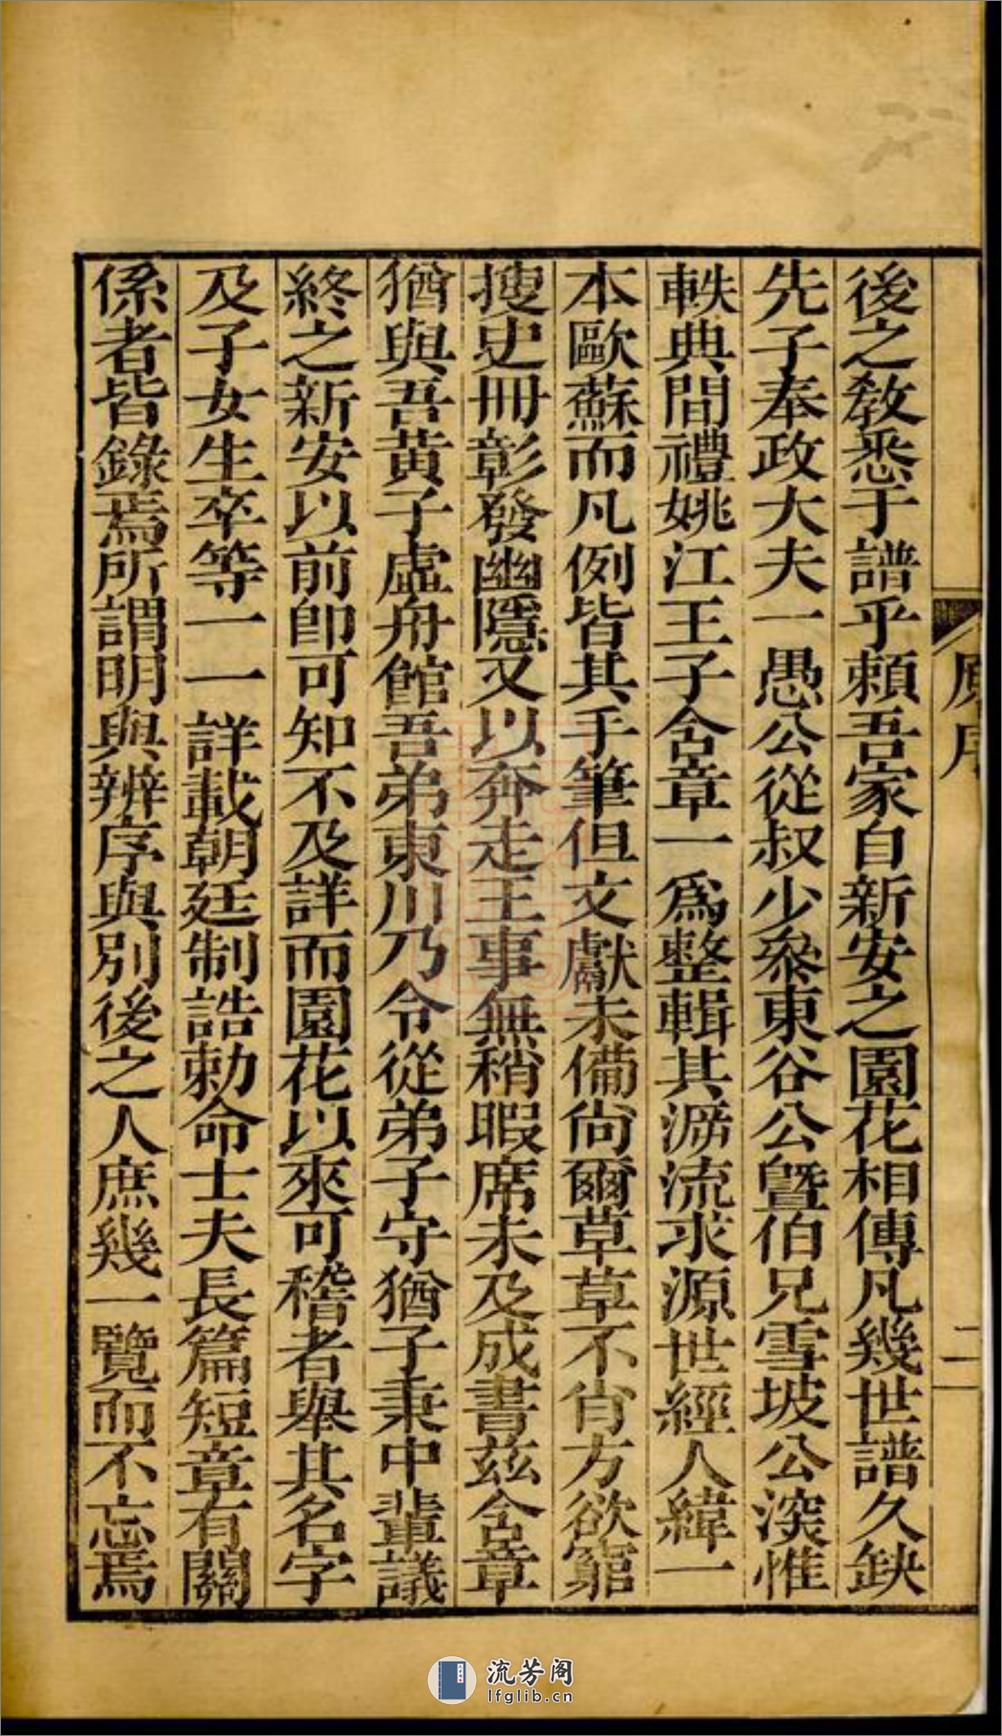 後之教悉于譜乎頼吾家自新安之園花相傳凡幾世譜久缺
先子奉政大夫一愚公從叔少叅東谷公曁伯兄雪坡公深惟
軼典間禮姚江王子含章一爲整輯其泝流求源世經人緯一
本歐蘇而凡例皆其手筆但文獻未備尙爾草草不肖方欲窮
搜史冊彰發幽隱又以奔走王事無稍暇席未及成書兹含章
猶與吾黃子虛舟館吾弟東川乃令從弟子守猶子秉中輩議
終之新安以前卽可知不及詳而園花以來可稽者舉其名字
及子女生卒等一一詳載朝廷制誥勅命士夫長篇短章有關
係者皆錄焉所謂明與辨序與別後之人庶幾一覽而不忘焉
序
二
流芳阁
lfglib.cn